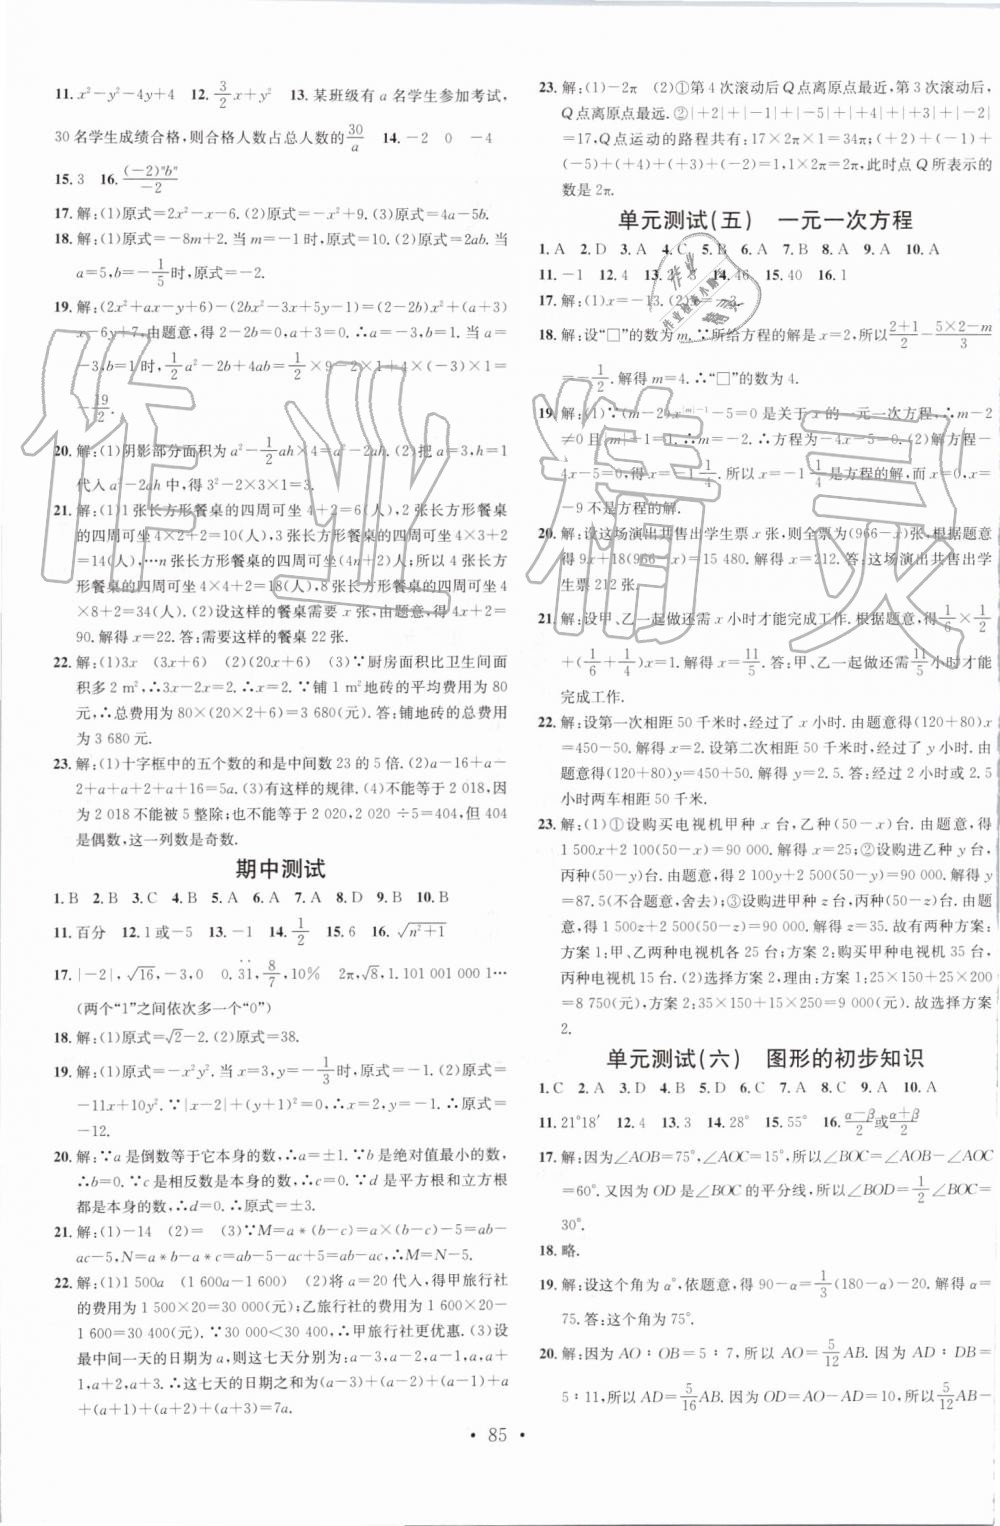 11. x²-y²-4y+4  12. 3/2x+y²  13. 某班级有 a 名学生参加考试,
30 名学生成绩合格,则合格人数占总人数的30/a  14. -2  0  -4
15. 3  16. (-2)ⁿbⁿ/-2
17. 解:(1)原式=2x²-x-6. (2)原式=-b²+9. (3)原式=4a-5b.
18. 解:(1)原式=-8m+2. 当 m=-1 时,原式=10. (2)原式=2ab. 当
a=5,b=-1/5时,原式=-2.
19. 解:(2x²+ax-y+6)-(2bx²-3x+5y-1)=(2-2b)x²+(a+3)
x-6y+7,由题意,得 2-2b=0,a+3=0. ∴a=-3,b=1. 当 a=
-3,b=1 时,1/2a²-2b+4ab=1/2×9-2×1+4×(-3)×1=
-19/2.
20. 解:(1)阴影部分面积为 a²-1/2ah×4=a²-2ah. (2)把 a=3,h=1
代入 a²-2ah 中,得 3²-2×3×1=3.
21. 解:(1)1 张长方形餐桌的四周可坐 4+2=6(人),2 张长方形餐桌
的四周可坐 4×2+2=10(人),3 张长方形餐桌的四周可坐 4×3+
2=14(人),…n 张长方形餐桌的四周可坐(4n+2)人;所以 4 张长
方形餐桌的四周可坐 4×4+2=18(人),8 张长方形餐桌的四周可坐
4×8+2=34(人). (2)设这样的餐桌需要 x 张,由题意,得 4x+2=
90. 解得 x=22. 答:需要这样的餐桌 22 张.
22. 解:(1)3x  (3x+6)  (2)(3x+6)  (3)∵厨房面积比卫生间面
积多 2 m²,∴3x-2x=2. ∴x=2. ∵铺 1 m² 地砖的平均费用为 80
元,∴总费用为 80×(20×2+6)=3 680(元). 答:铺地砖的总费用
为 3 680 元.
23. 解:(1)十字框中的五个数的和是中间数 23 的 5 倍. (2)a-16+a-
2+a+a+2+a+16=5a. (3)有这样的规律. (4)不能等于 2 018,因
为 2 018 不能被 5 整除;也不能等于 2 020,2 020÷5=404,但 404
是偶数,这一列数是奇数.
期中测试
1. B  2. B  3. C  4. B  5. A  6. A  7. A  8. D  9. B  10. B
11. 百分  12. 1 或-5  13. -1  14. 1/2  15. 6  16. √n²+1
17. |-2|,√16,-3,0  0.3̇1̇,8/7,10%  2π,√8,1.101 001 000 1…
(两个“1”之间依次多一个“0”)
18. 解:(1)原式=√2-2. (2)原式=38.
19. 解:(1)原式=-3x+3. 当 x=-1/3时,原式=4. (2)原式=
-11x+10y². ∵|x-2|+(y+1)²=0,∴x=2,y=-1. ∴原式=
-12.
20. 解:∵a 是倒数等于它本身的数,∴a=±1. ∵b 是绝对值最小的数,
∴b=0. ∵c 是相反数是本身的数,∴c=0. ∵d 是平方根和立方根
都是本身的数,∴d=0. ∴原式=±1.
21. 解:(1)-14  (2)=  (3)∵M=a*(b-c)=a(b-c)-5=ab-
ac-5,N=a*b-a*c=ab-5-ac+5=ab-ac,∴M=N-5.
22. 解:(1)1 500a  (1 600a-1 600)  (2)将 a=20 代入,得甲旅行社
的费用为 1 500×20=30 000(元);乙旅行社的费用为 1 600×20-
1 600=30 400(元). ∵30 000<30 400,∴甲旅行社更优惠. (3)设
最中间一天的日期为 a,则这七天分别为:a-3,a-2,a-1,a,a+
1,a+2,a+3. ∴这七天的日期之和为(a-3)+(a-2)+(a-1)+a
+(a+1)+(a+2)+(a+3)=7a.
23. 解:(1)-2π  (2)①第 4 次滚动后,Q 点离原点最近,第 3 次滚动后,
Q 点离原点最远. ②|+2|+|-1|+|-5|+|+4|+|+3|+|-2|
=17,Q 点运动的路程共有:17×2π×1=34π;(+2)+(-1)+
(-5)+(+4)+(+3)+(-2)=1,1×2π×1=2π,此时点 Q 所表示的
数是 2π.
单元测试(五)  一元一次方程
1. A  2. D  3. A  4. C  5. B  6. A  7. B  8. A  9. A  10. A
11. -1  12. 4  13. 2  3  14. 46  15. 40  16. 1
17. 解:(1)x=-13. (2)x=-3.
18. 解:设“□”的数为 m. ∵所给方程的解是 x=2,所以2+1/2-5×2-m/3
=-1/2. 解得 m=4. ∴“□”的数为 4.
19. 解:(1)∵(m-2)x^|m|-1-5=0 是关于 x 的一元一次方程,∴m-2
≠0 且|m|-1=1. ∴m=-2. ∴方程为-4x-5=0. (2)解方程
-4x-5=0,得 x=-1 1/4. 所以 x=-1 1/4是方程的解,而 x=0,x=
-9 不是方程的解.
20. 解:设这场演出共售出学生票 x 张,则全票为(966-x)张,根据题意
得 9x+18(966-x)=15 480. 解得 x=212. 答:这场演出共售出学
生票 212 张.
21. 解:设甲、乙一起做还需 x 小时才能完成工作. 根据题意,得1/6×1/2
+(1/6+1/4)x=1. 解得 x=11/5. 答:甲、乙一起做还需11/5小时才能
完成工作.
22. 解:设第一次相距 50 千米时,经过了 x 小时. 由题意得(120+80)x
=450-50. 解得 x=2. 设第二次相距 50 千米时,经过了 y 小时. 由
题意得(120+80)y=450+50. 解得 y=2.5. 答:经过 2 小时或 2.5
小时两车相距 50 千米.
23. 解:(1)①设购买电视机甲种 x 台,乙种(50-x)台,由题意,得
1 500x+2 100(50-x)=90 000. 解得 x=25;②设购进乙种 y 台,
丙种(50-y)台. 由题意,得 2 100y+2 500(50-y)=90 000. 解得 y
=87.5(不合题意,舍去);③设购进甲种 z 台,丙种(50-z)台. 由题
意,得 1 500z+2 500(50-z)=90 000. 解得 z=35. 故有两种方案:
方案 1:甲、乙两种电视机各 25 台;方案 2:购买甲种电视机 35 台,
丙种电视机 15 台. (2)选择方案 2,理由:方案 1:25×150+25×200
=8 750(元),方案 2:35×150+15×250=9 000(元). 故选择方案
2.
单元测试(六)  图形的初步知识
1. C  2. A  3. D  4. B  5. D  6. C  7. A  8. C  9. A  10. A
11. 21°18′  12. 4  13. 3  14. 28°  15. 55°  16. α-β/2或α+β/2
17. 解:因为∠AOB=75°,∠AOC=15°,所以∠BOC=∠AOB-∠AOC
=60°. 又因为 OD 是∠BOC 的平分线,所以∠BOD=1/2∠BOC=
30°.
18. 略.
19. 解:设这个角为 α°,依题意,得 90-α=1/3(180-α)-20. 解得 α=
75. 答:这个角为 75°.
20. 解:因为 AO∶OB=5∶7,所以 AO=5/12AB. 因为 AD∶DB=
5∶11,所以 AD=5/16AB. 因为 OD=AO-AD=10,所以5/12AB-
• 85 •
作业精灵